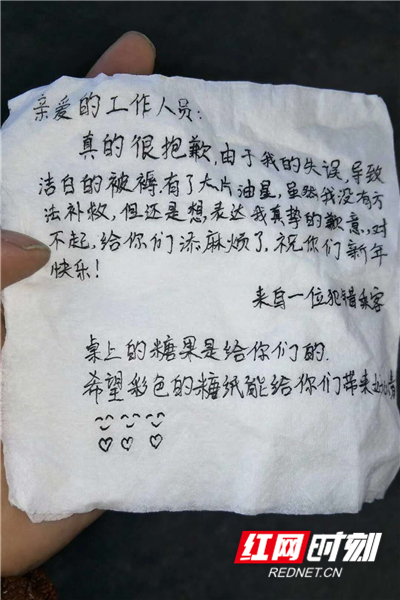 亲爱的工作人员:
真的很抱歉,由于我的失误,导致
洁白的被褥有了大片油星,虽然我没有方
法补救,但还是想表达我真挚的歉意,对
不起,给你们添麻烦了,祝你们新年
快乐!
来自一位犯错乘客
桌上的糖果是给你们的.
希望彩色的糖纸能给你们带来
红网时刻
REDNET.CN